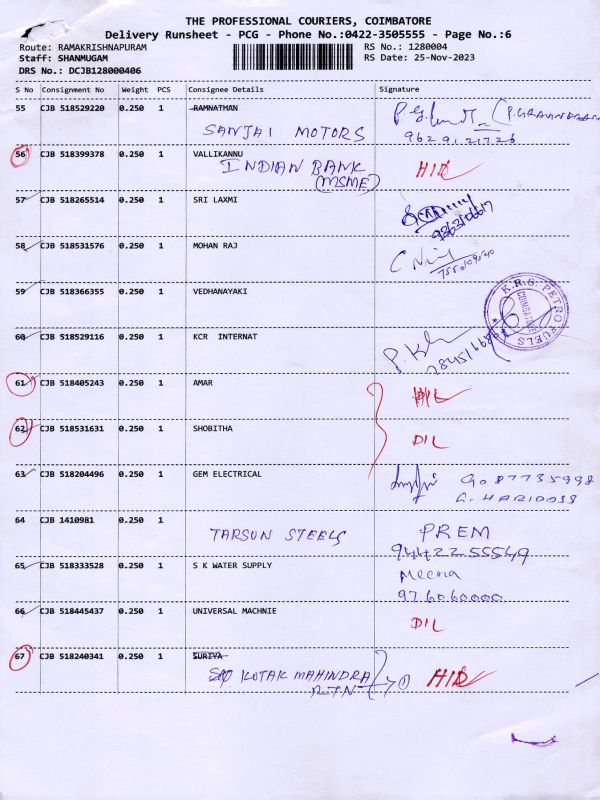 THE PROFESSIONAL COURIERS, COIMBATORE
Delivery Runsheet - PCG - Phone No.:0422-3505555 - Page No.:6
Route: RAMAKRISHNAPURAM RS No.: 1280004
Staff: SHANMUGAM RS Date: 25-Nov-2023
DRS No.: DCJB128000406
S No Consignment No Weight PCS Consignee Details Signature
55 CJB 518529220 0.250 1 RAMNATHAN
SANJAI MOTORS
56 CJB 518399378 0.250 1 VALLIKANNU
INDIAN BANK
(MSME)
57 CJB 518265514 0.250 1 SRI LAXMI
58 CJB 518531576 0.250 1 MOHAN RAJ
59 CJB 518366355 0.250 1 VEDHANAYAKI
K.R.S. PETRO FUELS
COIMBATORE
60 CJB 518529116 0.250 1 KCR INTERNAT
61 CJB 518405243 0.250 1 AMAR
62 CJB 518531631 0.250 1 SHOBITHA
DIL
63 CJB 518204496 0.250 1 GEM ELECTRICAL
G. HARIDOSS
64 CJB 1410981 0.250 1
TARSUN STEELS PREM
94422 55549
65 CJB 518333528 0.250 1 S K WATER SUPPLY Meena
976060000
66 CJB 518445437 0.250 1 UNIVERSAL MACHNIE
DIL
67 CJB 518240341 0.250 1 SURIYA
KOTAK MAHINDRA